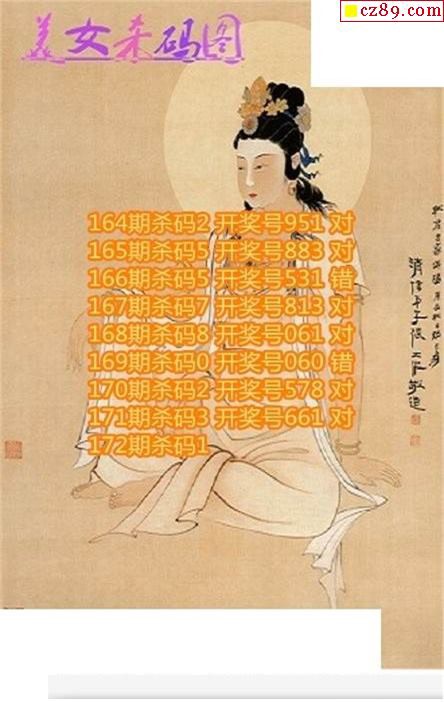 美女杀码图
cz89.com
164期杀码2 开奖号951 对
165期杀码5 开奖号883 对
166期杀码5 开奖号531 错
167期杀码7 开奖号813 对
168期杀码8 开奖号061 对
169期杀码0 开奖号060 错
170期杀码2 开奖号578 对
171期杀码3 开奖号661 对
172期杀码1